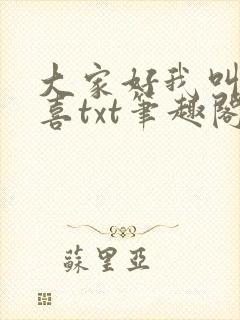 大家好我叫
喜txt筆趣閣
蘇里亞